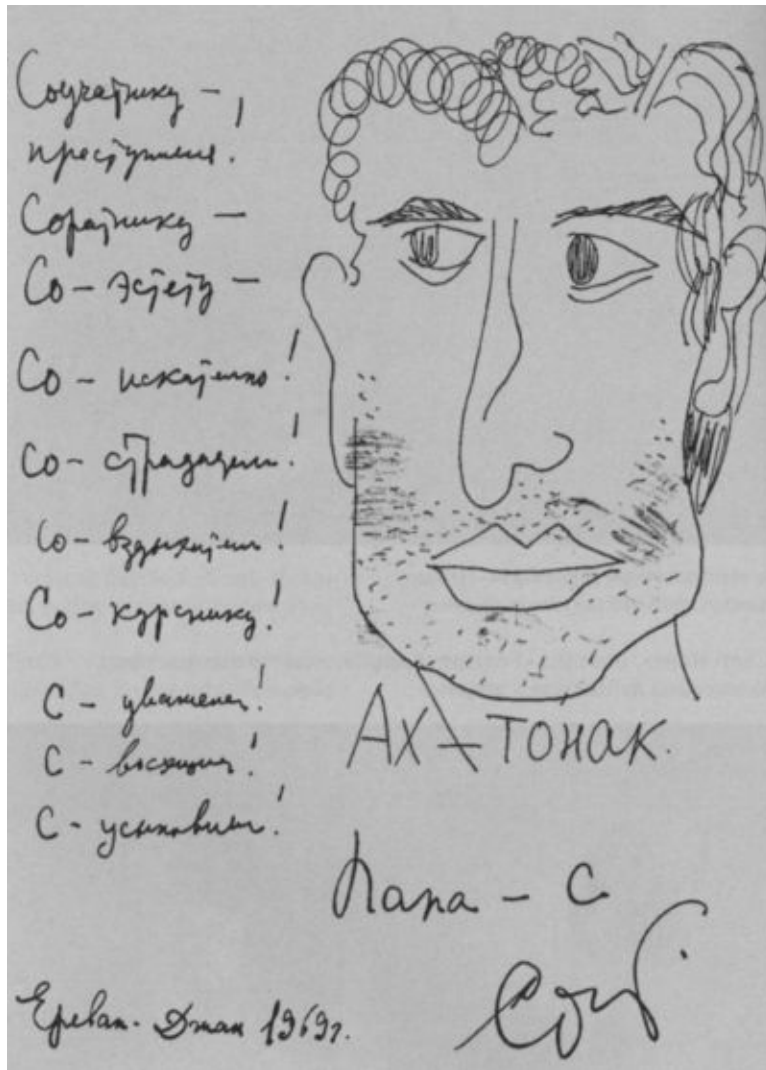 Соучастнику –
преступления!
Соратнику –
Со – эстету –
Со – искателю!
Со – страдателю!
Со – вздыхателю!
Со – курснику!
С – уважением!
С –
С –
АХ – ТОНАК.
Папа – С
Ереван. Джан 1969г.